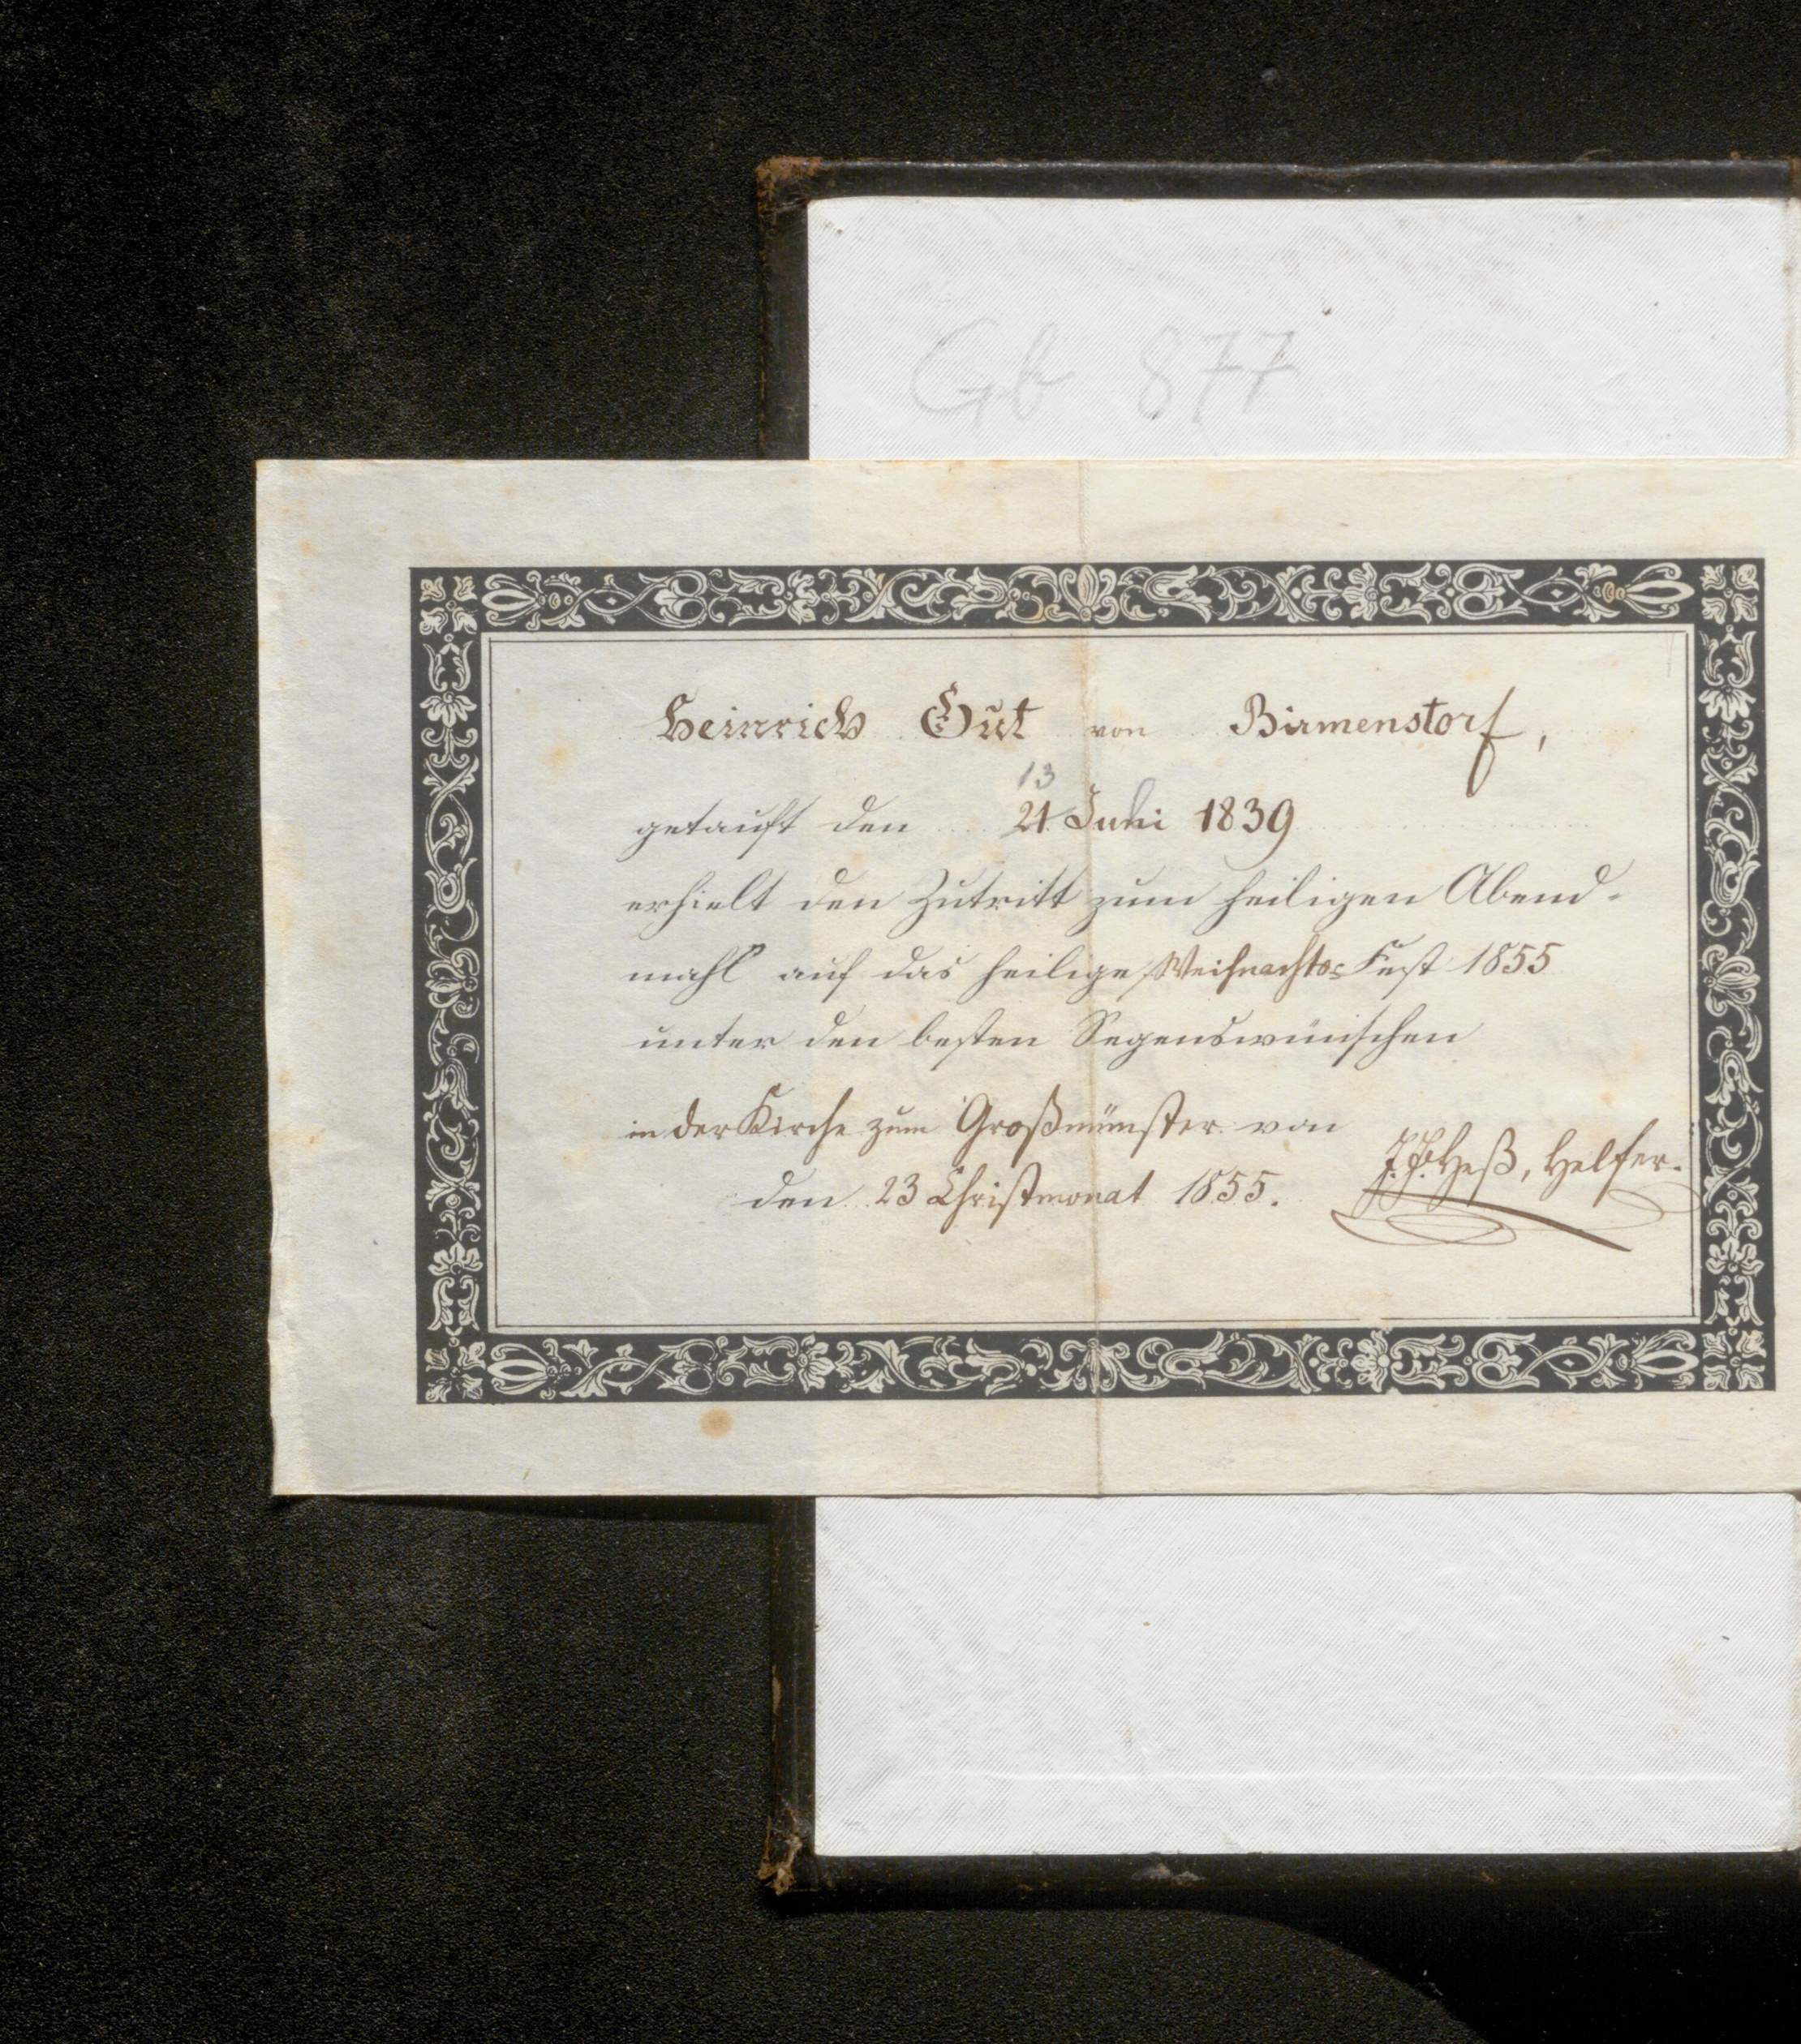 Gb 877
Heinrich Gut von Birmenstorf,
13
getauft den 21. Juni 1839
erhielt den Zutritt zum heiligen Abend-
mahl auf das heilige Weihnachts-Fest 1855
unter den besten Segenswünschen
in der Kirche zum Großmünster von
J. J. Heß, Helfer.
den 23 Christmonat 1855.